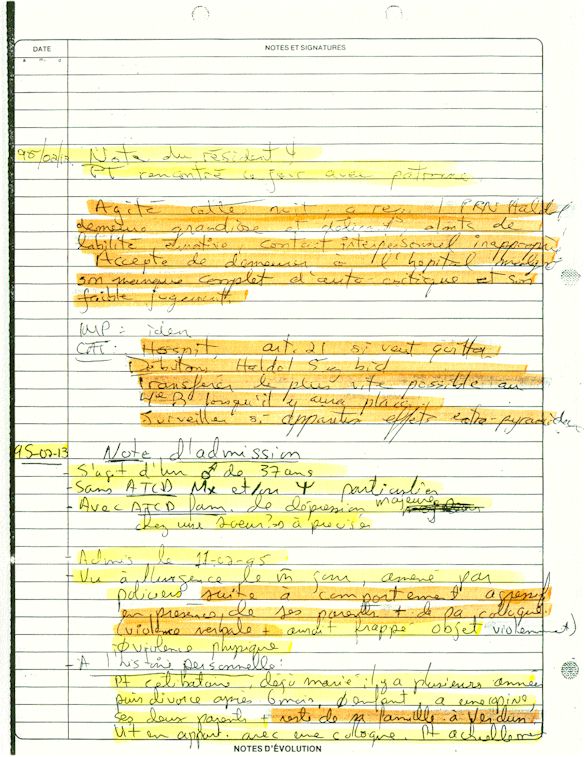 DATE
NOTES ET SIGNATURES
95/02/12 Note du résident Ψ
PT rencontré ce jour avec patronne.
Agité cette nuit, a reçu 1 PRN Haldol
demeure grandiose et délirant, de
labilité émotive, contact interpersonnel inapproprié
Accepte de demeurer à l'hôpital malgré
son manque complet d'auto-critique et son
faible jugement.
MP : idem
CAT : Hospit. art. 21 si veut quitter
Débutons Haldol 5 mg bid
Transférer le plus vite possible au
4e B lorsqu'il y aura place
Surveiller si apparition effets extra-pyramidaux
95-02-13 Note d'admission
S'agit d'un ♂ de 37 ans
- Sans ATCD Mx et/ou Ψ particulier
- Avec ATCD fam. de dépression majeure
chez une soeur à préciser
- Admis le 11-02-95
- Vu à l'urgence le m̄ jour, amené par
policiers suite à comportement agressif
en présence de ses parents + de sa colloque.
(violence verbale + aurait frappé objet violemment)
Ø violence physique
- À l'histoire personnelle :
Pt célibataire, déjà marié il y a plusieurs années
puis divorce après 6 mois, Ø enfant, a une copine,
ses deux parents + reste de sa famille à Verdun.
Vit en appart. avec une colloque. Pt actuellement
NOTES D'ÉVOLUTION